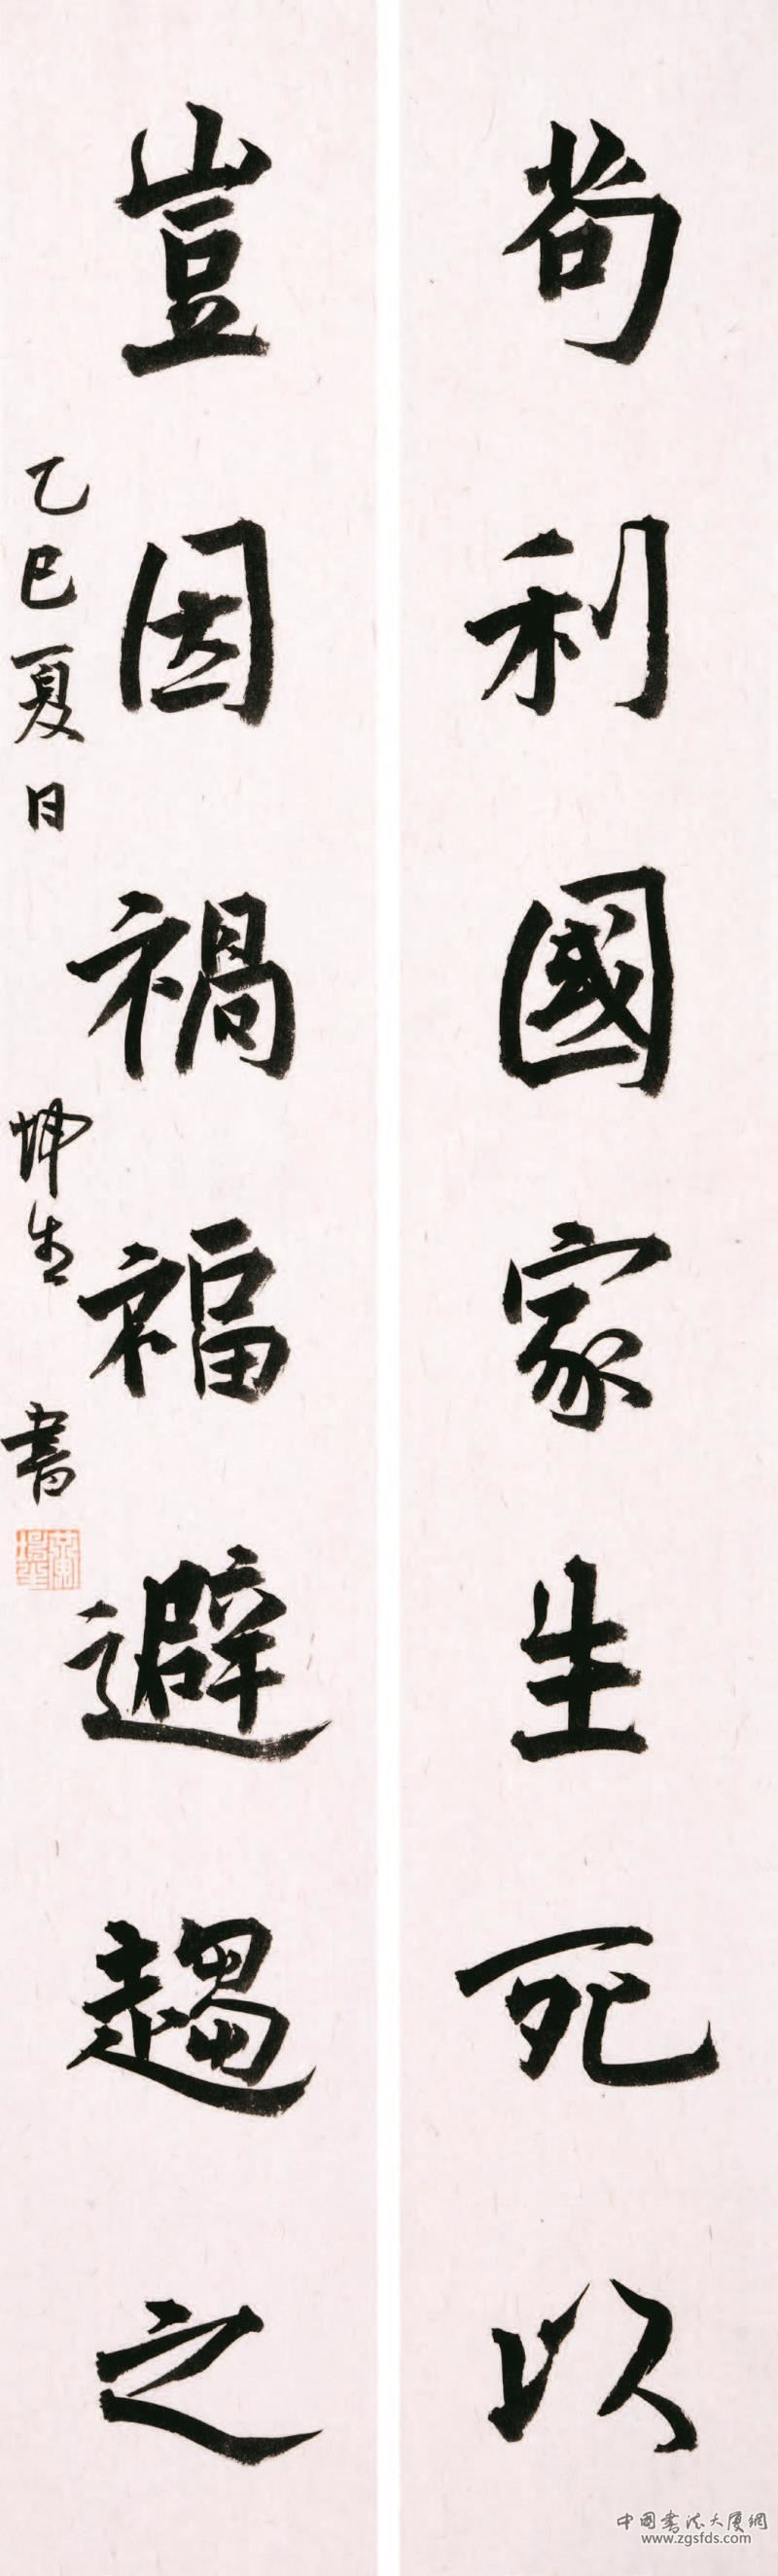 苟利國家生死以
豈因禍福避趨之
乙巳夏日 坤生 書
中国书法大厦網
www.zgsfds.com